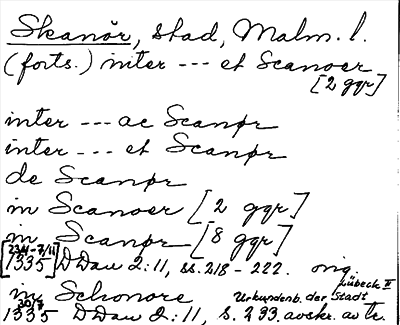 Skanör, stad, Malm. l.
(forts.) inter --- et Scanoer
[2 ggr]
inter --- ac Scanør
inter --- et Scanør
de Scanør
in Scanoer [2 ggr]
in Scanør [8 ggr]
[23/4-7/11 1335] DDan 2:11, ss. 218-222. orig
in Schonore Urkundenb. der Stadt Lübeck II
30/7 1335 DDan 2:11, s. 293. avskr. av tr.